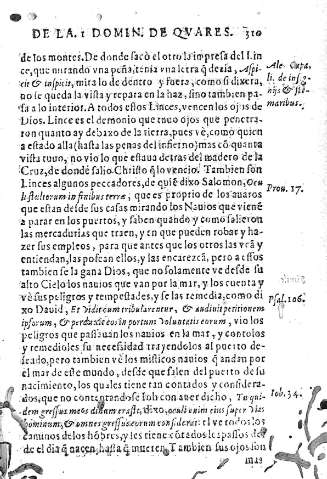 DE LA. 1 DOMIN. DE QVARES. 310
de los montes. De donde sacò el otro la impresa del Lin
ce, que mirando vna peña, tenia vna letra q̃ dezia, Aspi-
cit & inspicit, miralo de dentro y fuera, como si dixera,
no se queda la vista y repara en la haz, sino tambien pas-
sa a lo interior. A todos estos Linces, vencen los ojos de
Dios. Lince es el demonio que tuuo ojos que penetra-
ron quanto ay debaxo de la tierra, pues vè, como quien
a estado alla (hasta las penas del infierno) mas cõ quanta
vista tuuo, no vio lo que estaua detras del madero de la
Cruz, de donde salio Christo q̃ lo vencio. Tambien son
Linces algunos peccadores, de quiẽ dixo Salomon, Ocu
li stultorum in finibus terræ, que es proprio de los auaros
que estan desde sus casas mirando los Nauios que viene
a parar en los puertos, y saben quando y como salieron
las mercadurias que traen, y en que pueden robar y ha-
zer sus empleos, para que antes que los otros las vrã y
entiendan, las posean ellos, y las encarezcã, pero a estos
tambien se la gana Dios, que no solamente ve desde su
alto Cielo los nauios que van por la mar, y los cuenta y
vè sus peligros y tempestades, y se las remedia, como di
xo Dauid, Et vidit cum tribularentur, & audiuit petitionem
ipsorum, & perduxit eos in portum voluntatis eorum, vio los
peligros que passauan los nauios en la mar, y contolos
y remedioles su necesidad trayendolos al puerto de-
seado, pero tambien vè los misticos nauios q̃ andan por
el mar de este mundo, desde que salen del puerto de su
nacimiento, los quales tiene tan contados y considera-
dos, que no contentandose Iob con auer dicho, Tu qui-
dem gressus meos dinumerasti, dixo, oculi enim eius super vias
hominum, & omnes gressus eorum considerat: el ve todos los
caminos de los hõbres, y les tiene cõtados los passos des
de el dia q̃ naçen, hasta q̃ mueren. Tambien sus ojos son
mas
Ale. Cupa.
li. de insig-
nijs & ste
maribus.
Prou. 17.
Psal. 106.
Iob. 34.